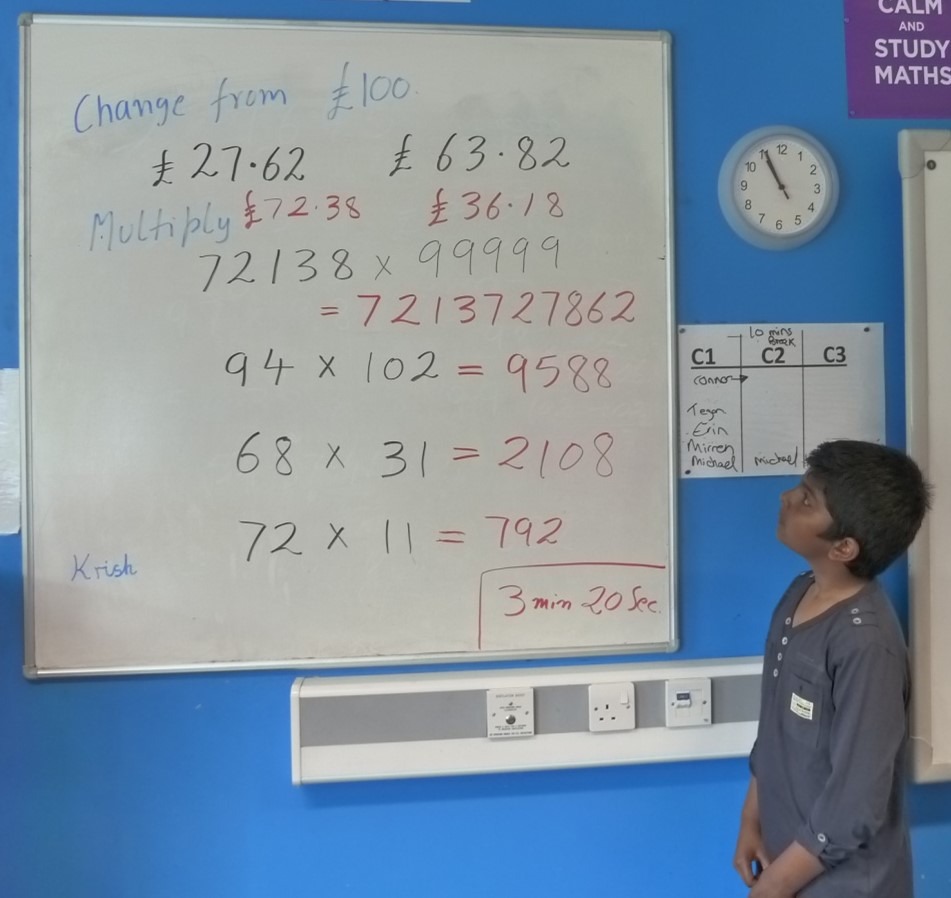 Change from £100.
£27.62 £63.82
£72.38 £36.18
Multiply
72138 × 99999
= 7213727862
94 × 102 = 9588
68 × 31 = 2108
72 × 11 = 792
Krish
3 min 20 Sec.
CALM
AND
STUDY
MATHS
12
1
2
3
4
5
6
7
8
9
10
11
10 mins
Break
C1 C2 C3
Connor
Tegan
Erin
Mirren
Michael Michael